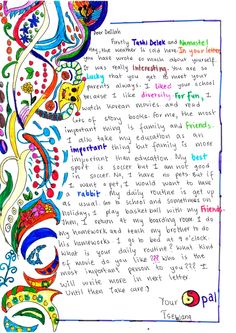 Dear Delilah
Firstly Tashi Delek and Namaste!
the weather is sad here. In your letter,
you have wrote so much about yourself.
It was really Interesting. You are so
Lucky that you get to meet your
parents always. I liked your school
because I like diversity. For fun, I
watch Korean movies and read
Lots of story books. For me, the most
important thing is family and friends.
I also take my education as an
important thing but family is more
important than education. My best
sport is soccer but I am not good
in soccer. No, I have no pets. But if
I want a pet, I would want to have
a rabbit. My daily routine is get up
as usual. Go to school and sometimes on
holiday, I play basketball with my friends
then, I return at my boarding room I do
my homework and teach my brother to do
his homeworks I go to bed at 9 o'clock
what is your daily routine? What kind
of movie do you like ??? Who is the
most important person to you??? I
will write more in next letter.
Until then Take care:)
Your pal
Tsewang